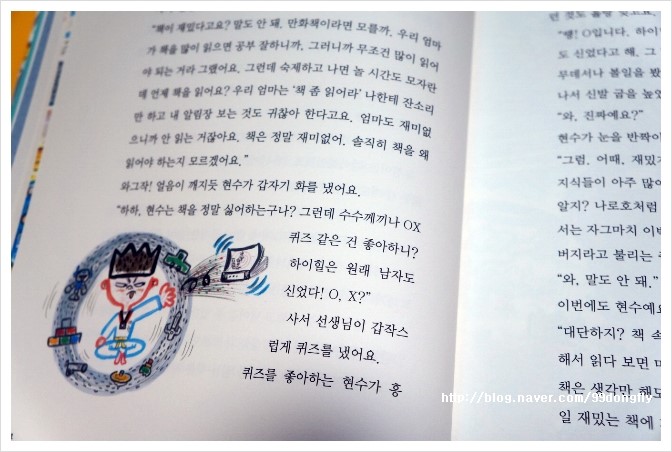 “책이 재밌다고요? 말도 안 돼. 만화책이라면 모를까. 우리 엄마
가 책을 많이 읽으면 공부 잘하니까, 그러니까 무조건 많이 읽어
야 되는 거라 그랬어요. 그런데 숙제하고 나면 놀 시간도 모자란
데 언제 책을 읽어요? 우리 엄마는 ‘책 좀 읽어라’ 나한테 잔소리
만 하고 내 알림장 보는 것도 귀찮아 한다고요. 엄마도 재미없
으니까 안 읽는 거잖아요. 책은 정말 재미없어. 솔직히 책을 왜
읽어야 하는지 모르겠어요.”
와그작! 얼음이 깨지듯 현수가 갑자기 화를 냈어요.
“하하, 현수는 책을 정말 싫어하는구나? 그런데 수수께끼나 OX
퀴즈 같은 건 좋아하니?
하이힐은 원래 남자도
신었다! O, X?”
사서 선생님이 갑작스
럽게 퀴즈를 냈어요.
퀴즈를 좋아하는 현수가 흥
“땡! O입니다. 하이
도 신었다고 해. 그
무데서나 볼일을 봤
나서 신발 굽을 높였
“와, 진짜예요?”
현수가 눈을 반짝이
“그럼. 어때, 재밌지
지식들이 아주 많이
알지? 나로호처럼
서는 자그마치 이번
버지라고 불리는
“와, 말도 안 돼.”
이번에도 현수예요
“대단하지? 책 속
해서 읽다 보면
책은 생각만 해도
일 재밌는 책에
http://blog.naver.com/99dongfly